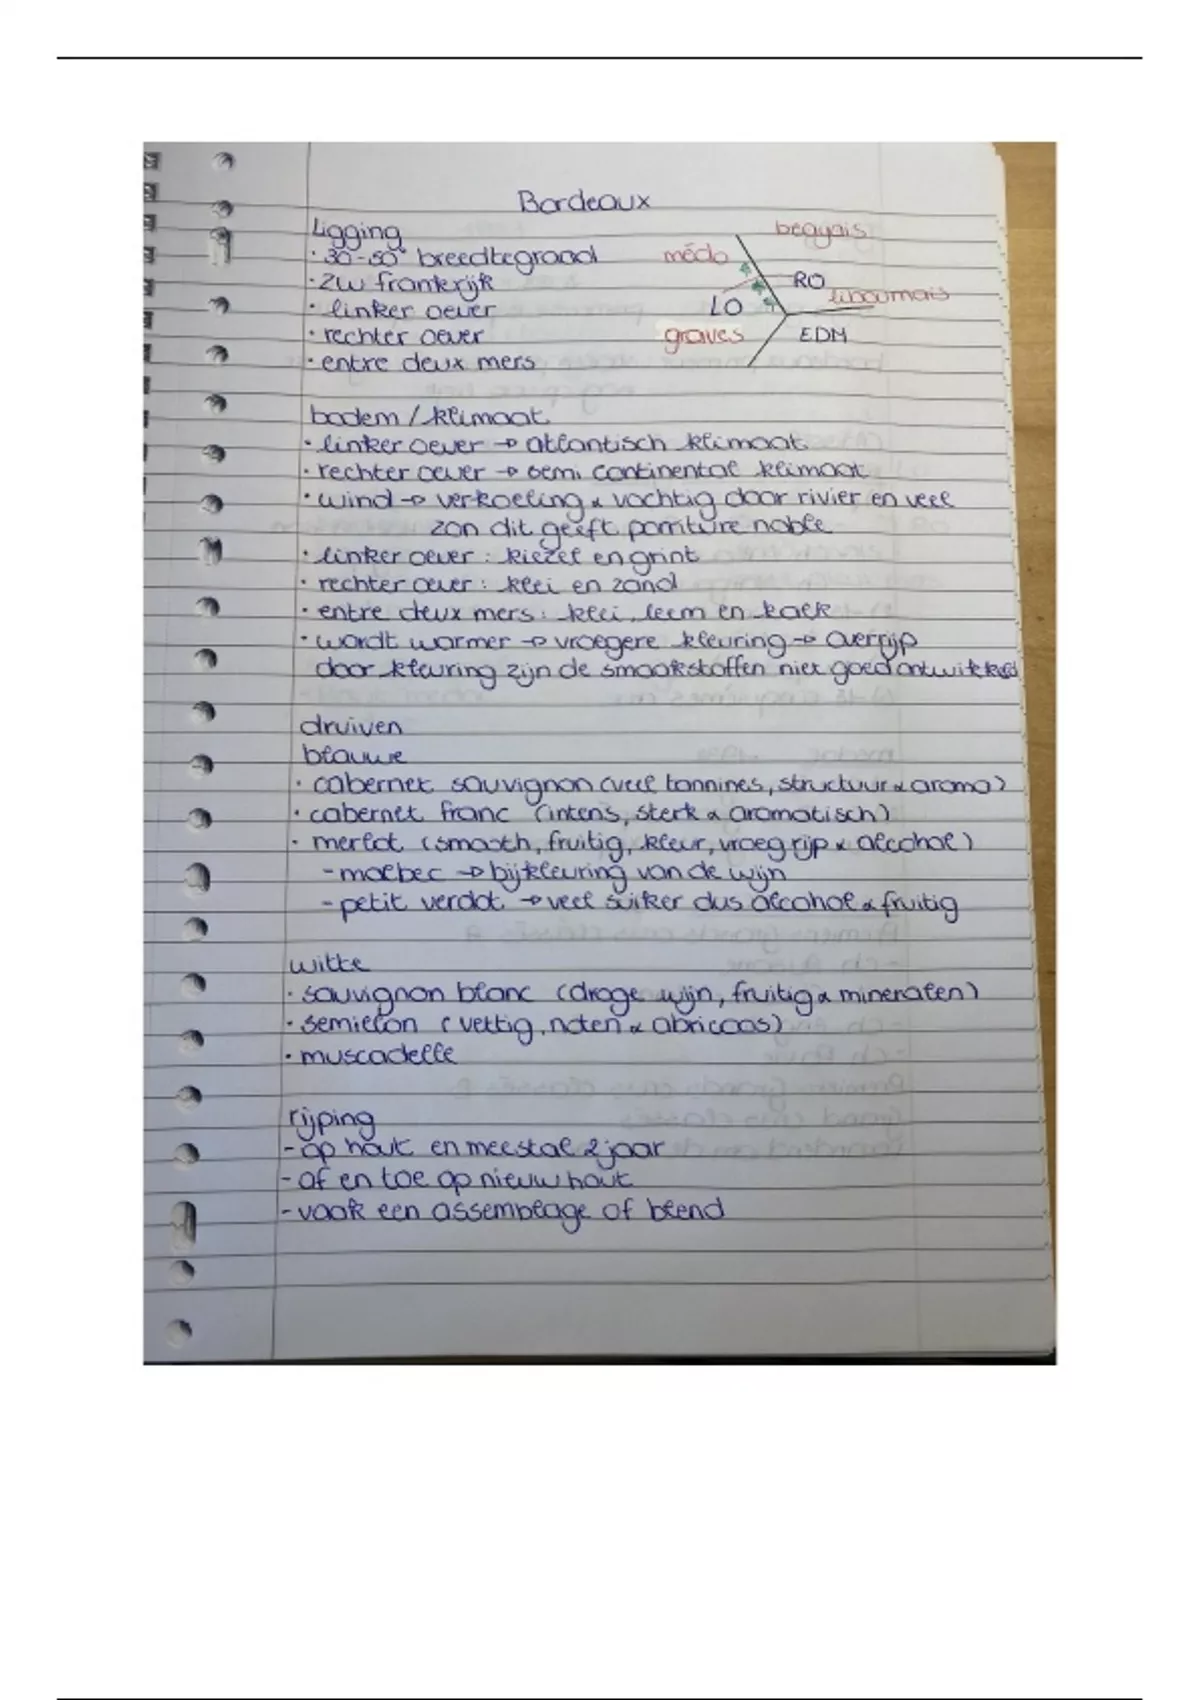 Bordeaux
begyais
Ligging
• 30-50° breedtegraad
médo
• ZW frankrijk
RO
• linker oever
LO
libournais
• rechter oever
graves
EDM
• entre deux mers
bodem / klimaat
• linker oever → atlantisch klimaat
• rechter oever → semi continental klimaat
• wind → verkoeling & vochtig door rivier en veel
zon dit geeft porriture noble
• linker oever : kiezel en grint
• rechter oever : klei en zand
• entre deux mers : klei, leem en kalk
• wordt warmer → vroegere kleuring → overrijp
door kleuring zijn de smaakstoffen niet goed ontwikkeld
druiven
blauwe
• cabernet sauvignon (veel tannines, structuur & aroma)
• cabernet franc (intens, sterk & aromatisch)
• merlot (smooth, fruitig, kleur, vroeg rijp & alcohol)
- malbec → bijkleuring van de wijn
- petit verdot → veel suiker dus alcohol & fruitig
witte
• sauvignon blanc (droge wijn, fruitig & mineralen)
• semielon (vettig, noten & abricoos)
• muscadelle
rijping
- op hout en meestal 2 jaar
- af en toe op nieuw hout
- vaak een assemblage of blend